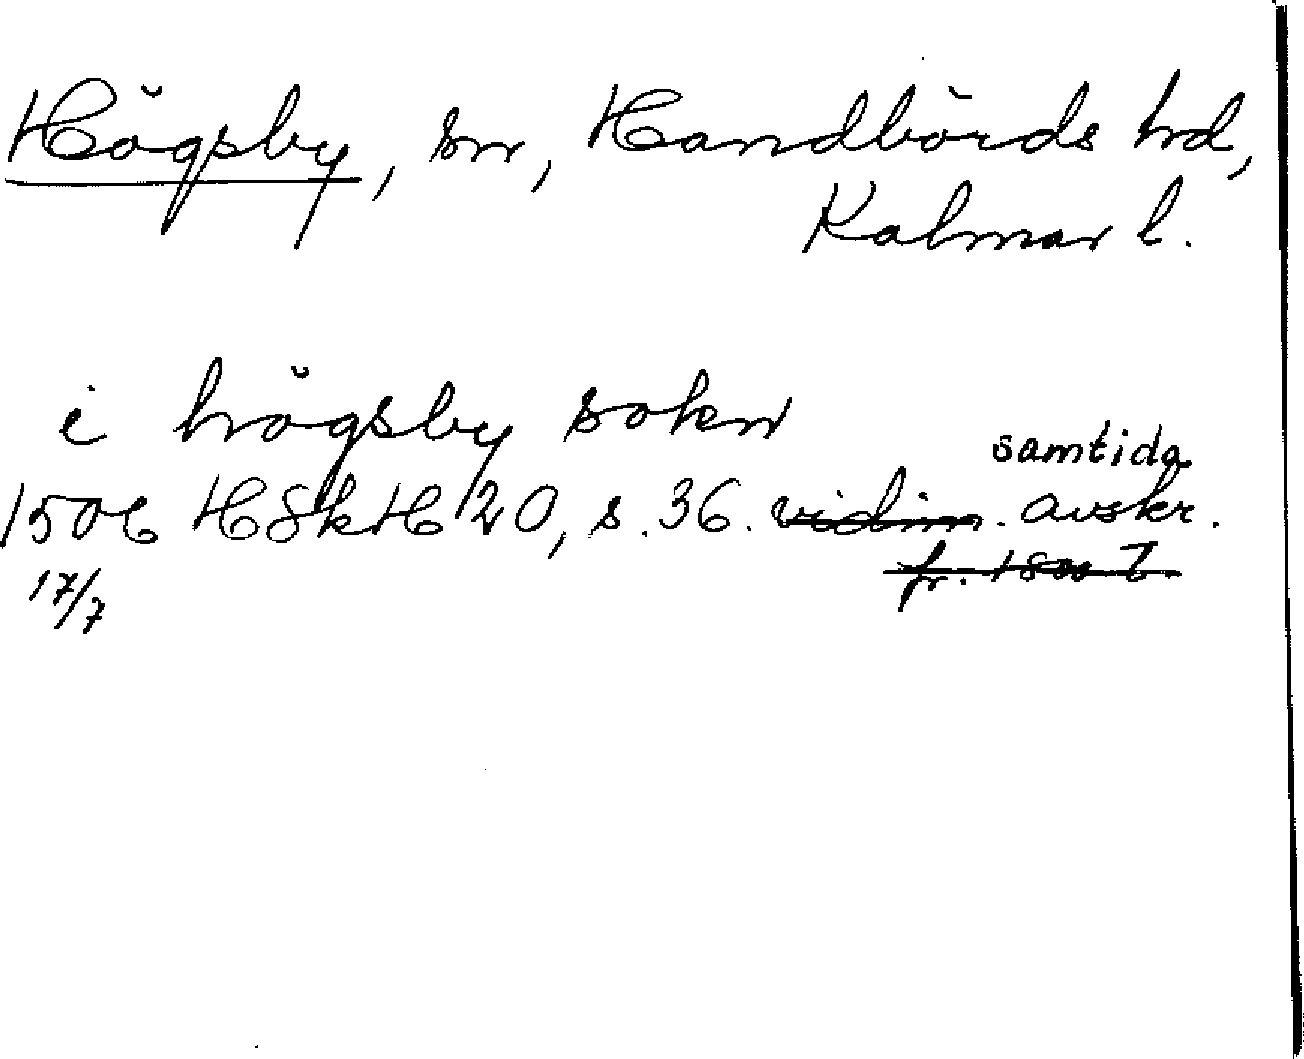 Högsby, sn, Handbörds hd,
Kalmar l.
i högsby sokn
samtida
1506 HSkH 20, s. 36. vidim. avskr.
17/7 fr. 1800 t.